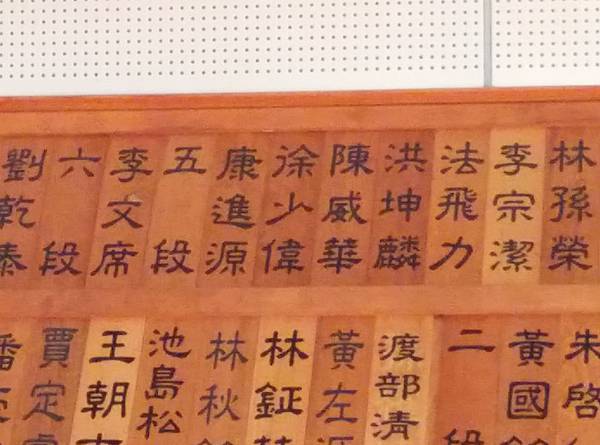 林孫榮
李宗潔
法飛力
洪坤麟
陳威華
徐少偉
康進源
五段
李文席
六段
劉乾泰
朱啓
黃國
二段
渡部清
黃左
林鉦
林秋
池島松
王朝
賈定
潘